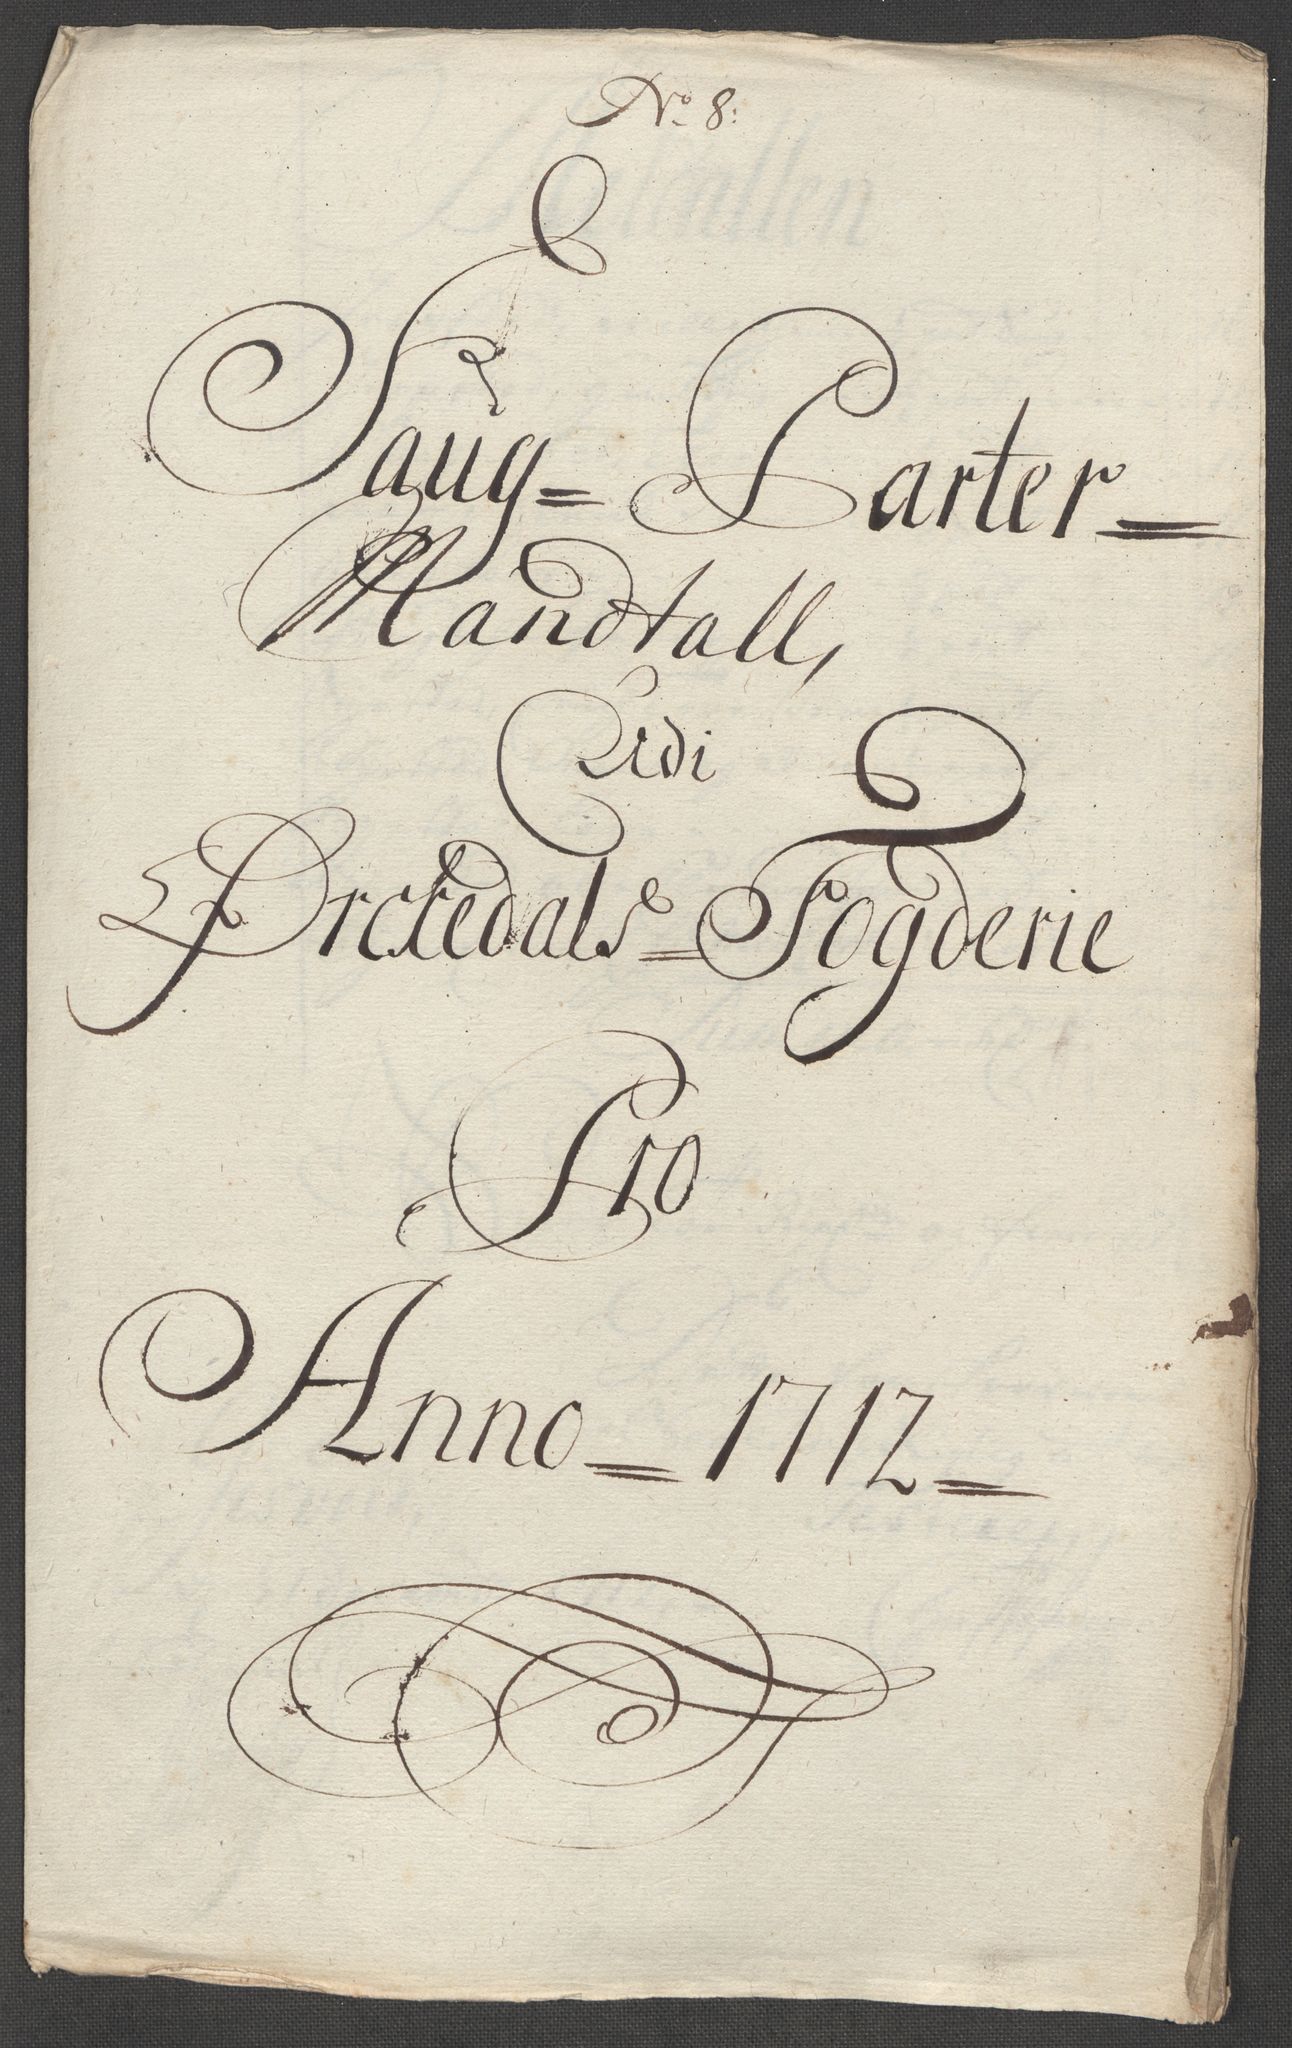 No 8:
Saug= Parter=
Mandtall,
Udi
Orckedals= Fogderie
Pro
Anno= 1712=